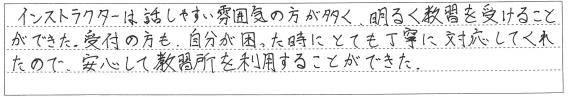 インストラクターは話しやすい雰囲気の方が多く、明るく教習を受けること
ができた。受付の方も、自分が困った時にとても丁寧に対応してくれ
たので、安心して教習所を利用することができた。